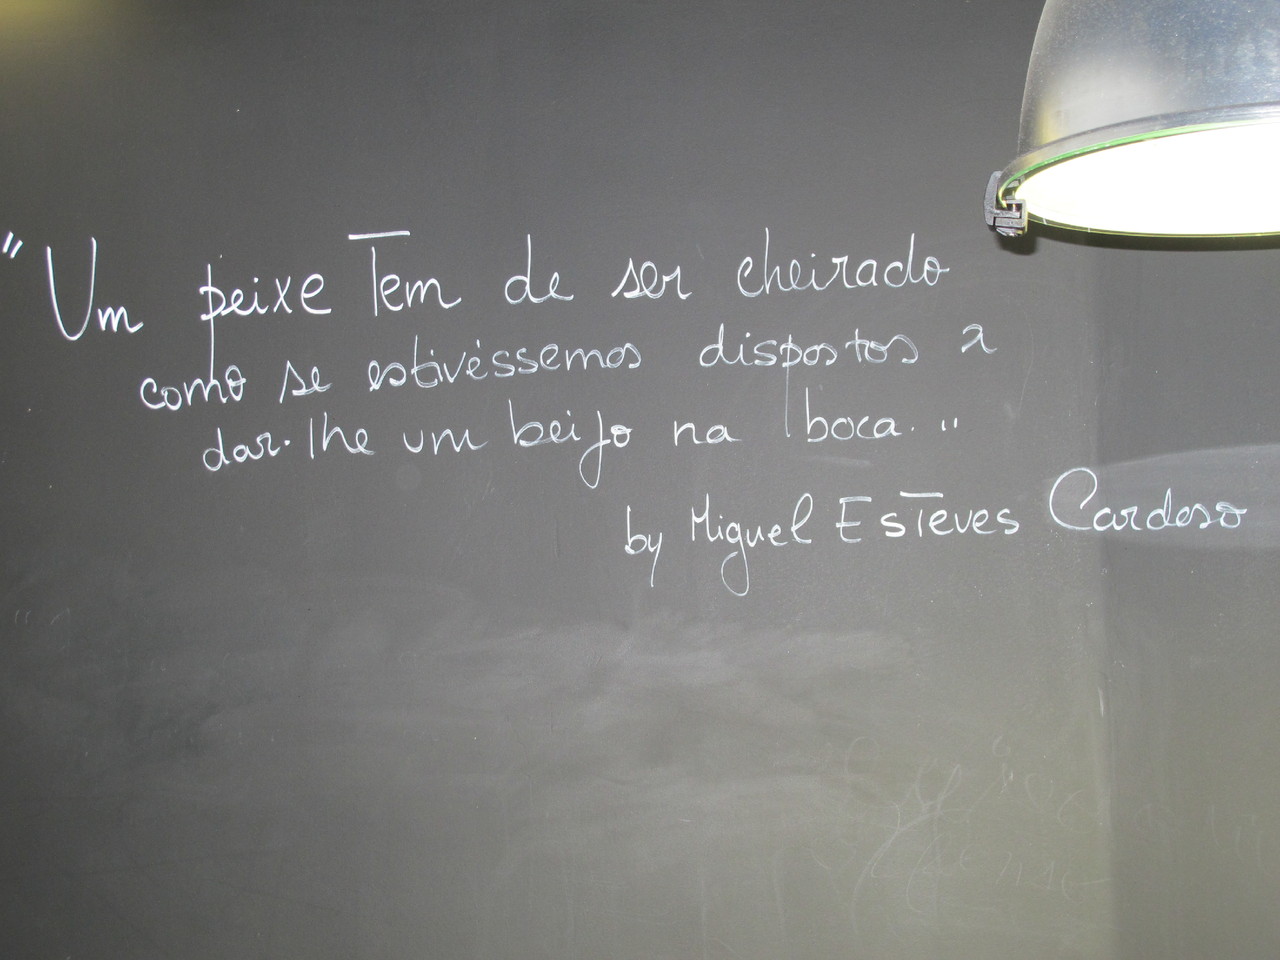 "Um peixe Tem de ser cheirado
como se estivéssemos dispostos a
dar-lhe um beijo na boca."
by Miguel Esteves Cardoso